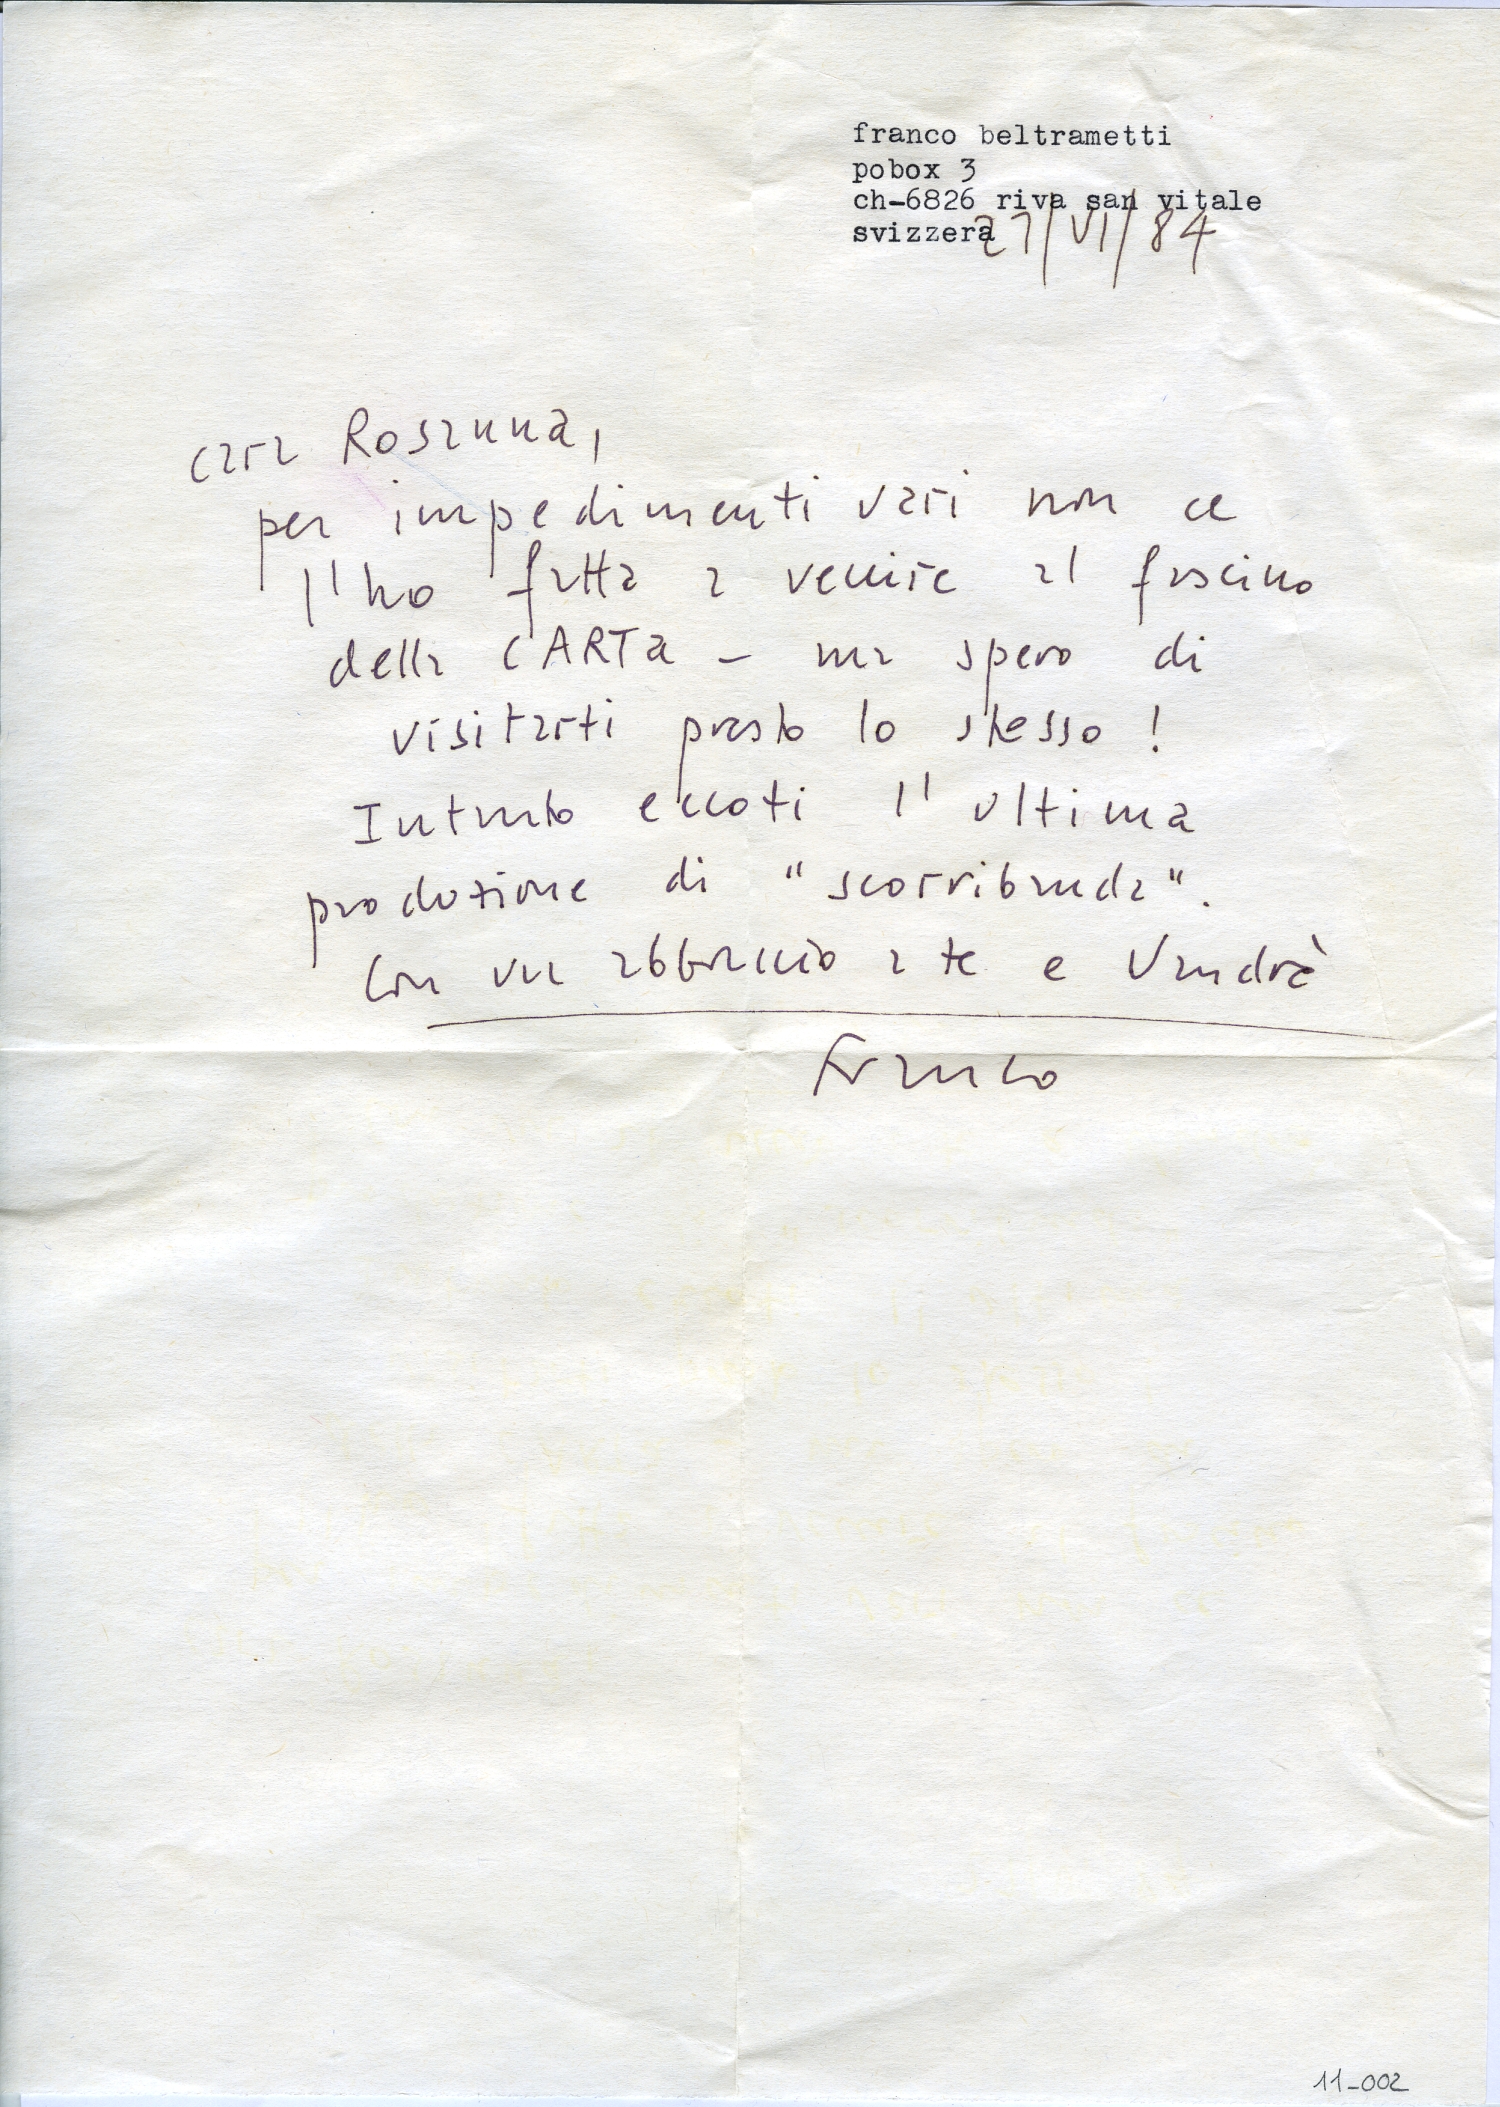 franco beltrametti
pobox 3
ch-6826 riva san vitale
svizzera
27/VI/84
cara Rosanna,
per impedimenti vari non ce
l'ho fatta a venire al fascino
della CARTa – ma spero di
visitarti presto lo stesso!
Intanto eccoti l'ultima
produzione di "scorribanda".
Con un abbraccio a te e Vandrè
Franco
11-002